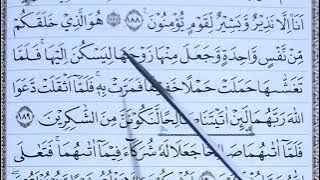 اَنَا اِلَّا نَذِيْرٌ وَّبَشِيْرٌ لِّقَوْمٍ يُّؤْمِنُوْنَ ﴿١٨٨﴾ هُوَ الَّذِيْ خَلَقَكُمْ
مِّنْ نَّفْسٍ وَّاحِدَةٍ وَّجَعَلَ مِنْهَا زَوْجَهَا لِيَسْكُنَ اِلَيْهَا ۚ فَلَمَّا
تَغَشّٰىهَا حَمَلَتْ حَمْلًا خَفِيْفًا فَمَرَّتْ بِهٖ ۚ فَلَمَّا اَثْقَلَتْ دَّعَوَا
اللّٰهَ رَبَّهُمَا لَىِٕنْ اٰتَيْتَنَا صَالِحًا لَّنَكُوْنَنَّ مِنَ الشّٰكِرِيْنَ ﴿١٨٩﴾
فَلَمَّاۤ اٰتٰىهُمَا صَالِحًا جَعَلَا لَهٗ شُرَكَآءَ فِيْمَاۤ اٰتٰىهُمَا ۚ فَتَعٰلَى